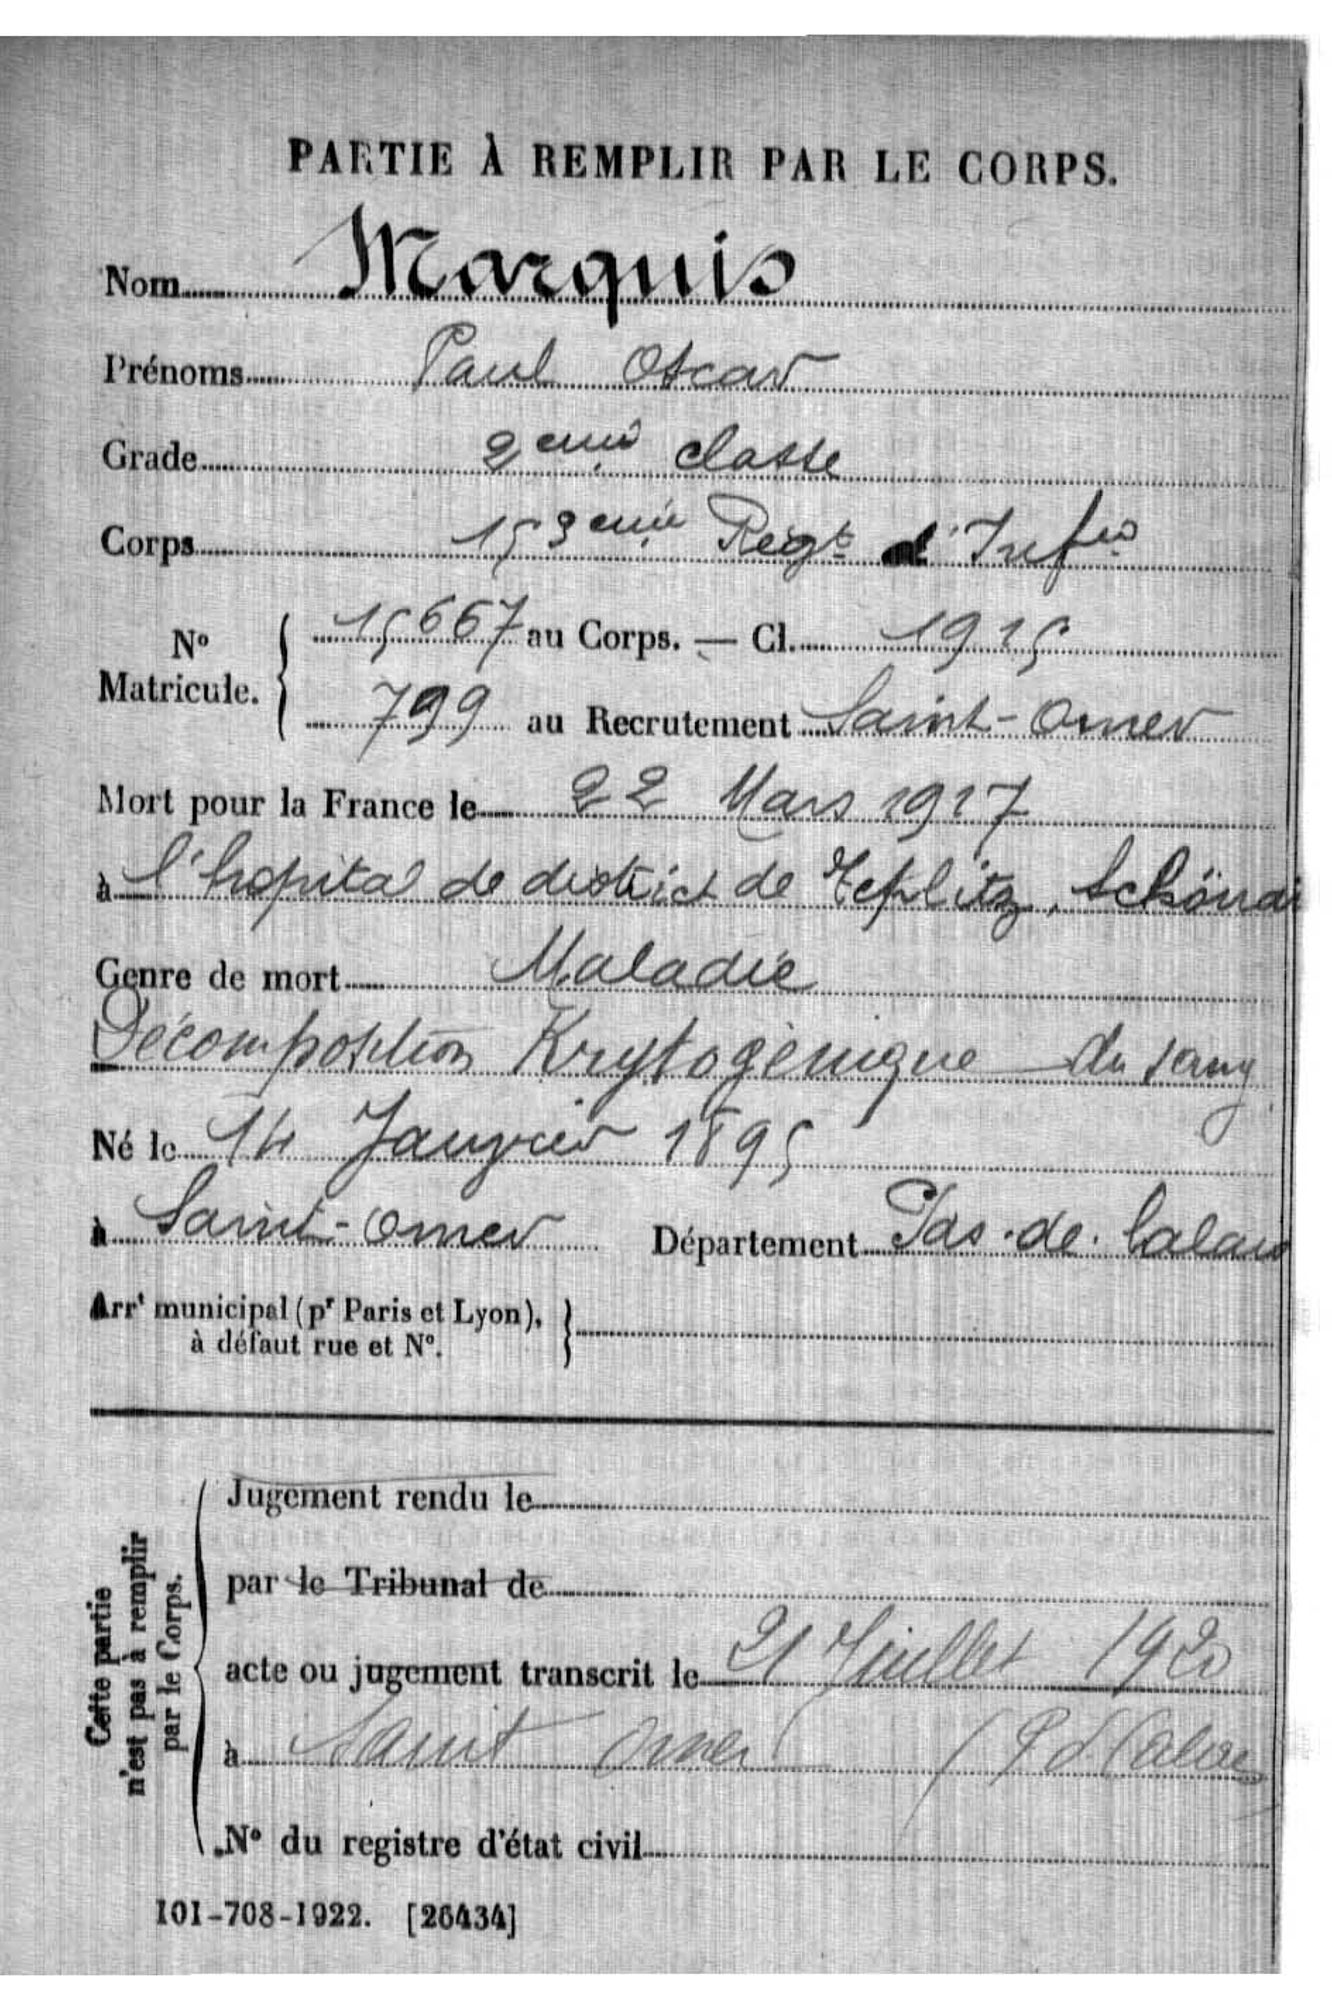 PARTIE À REMPLIR PAR LE CORPS.
Nom Marquis
Prénoms Paul Oscar
Grade 2eme classe
Corps 153eme Régt d'Infie
N° Matricule. 15667 au Corps. — Cl. 1915
799 au Recrutement Saint-Omer
Mort pour la France le 22 Mars 1917
à l'hopital de district de Teplitz, Schönau
Genre de mort Maladie
Décomposition Krytogènique du sang
Né le 14 Janvier 1895
à Saint-Omer Département Pas-de-Calais
Arrt municipal (pr Paris et Lyon),
à défaut rue et N°.
Cette partie
n'est pas à remplir
par le Corps.
Jugement rendu le
par le Tribunal de
acte ou jugement transcrit le 21 Juillet 1920
à Saint Omer (P d Calais
N° du registre d'état civil
101-708-1922. [26434]